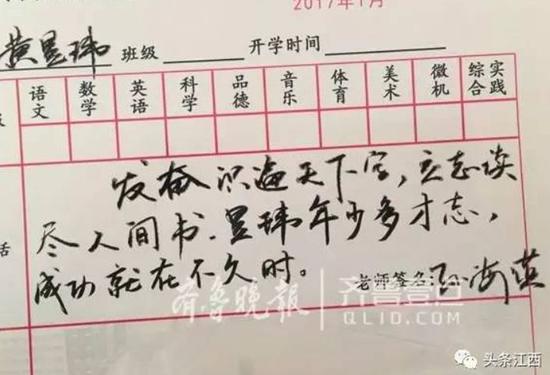 2017年1月
黄昱玮 班级 开学时间
语文 数学 英语 科学 品德 音乐 体育 美术 微机 综合实践
发奋识遍天下字，立志读
尽人间书.昱玮年少多才志，
话
成功就在不久时。
老师签名:孙海英
齐鲁晚报 齐鲁壹点
QLID.COM
头条江西